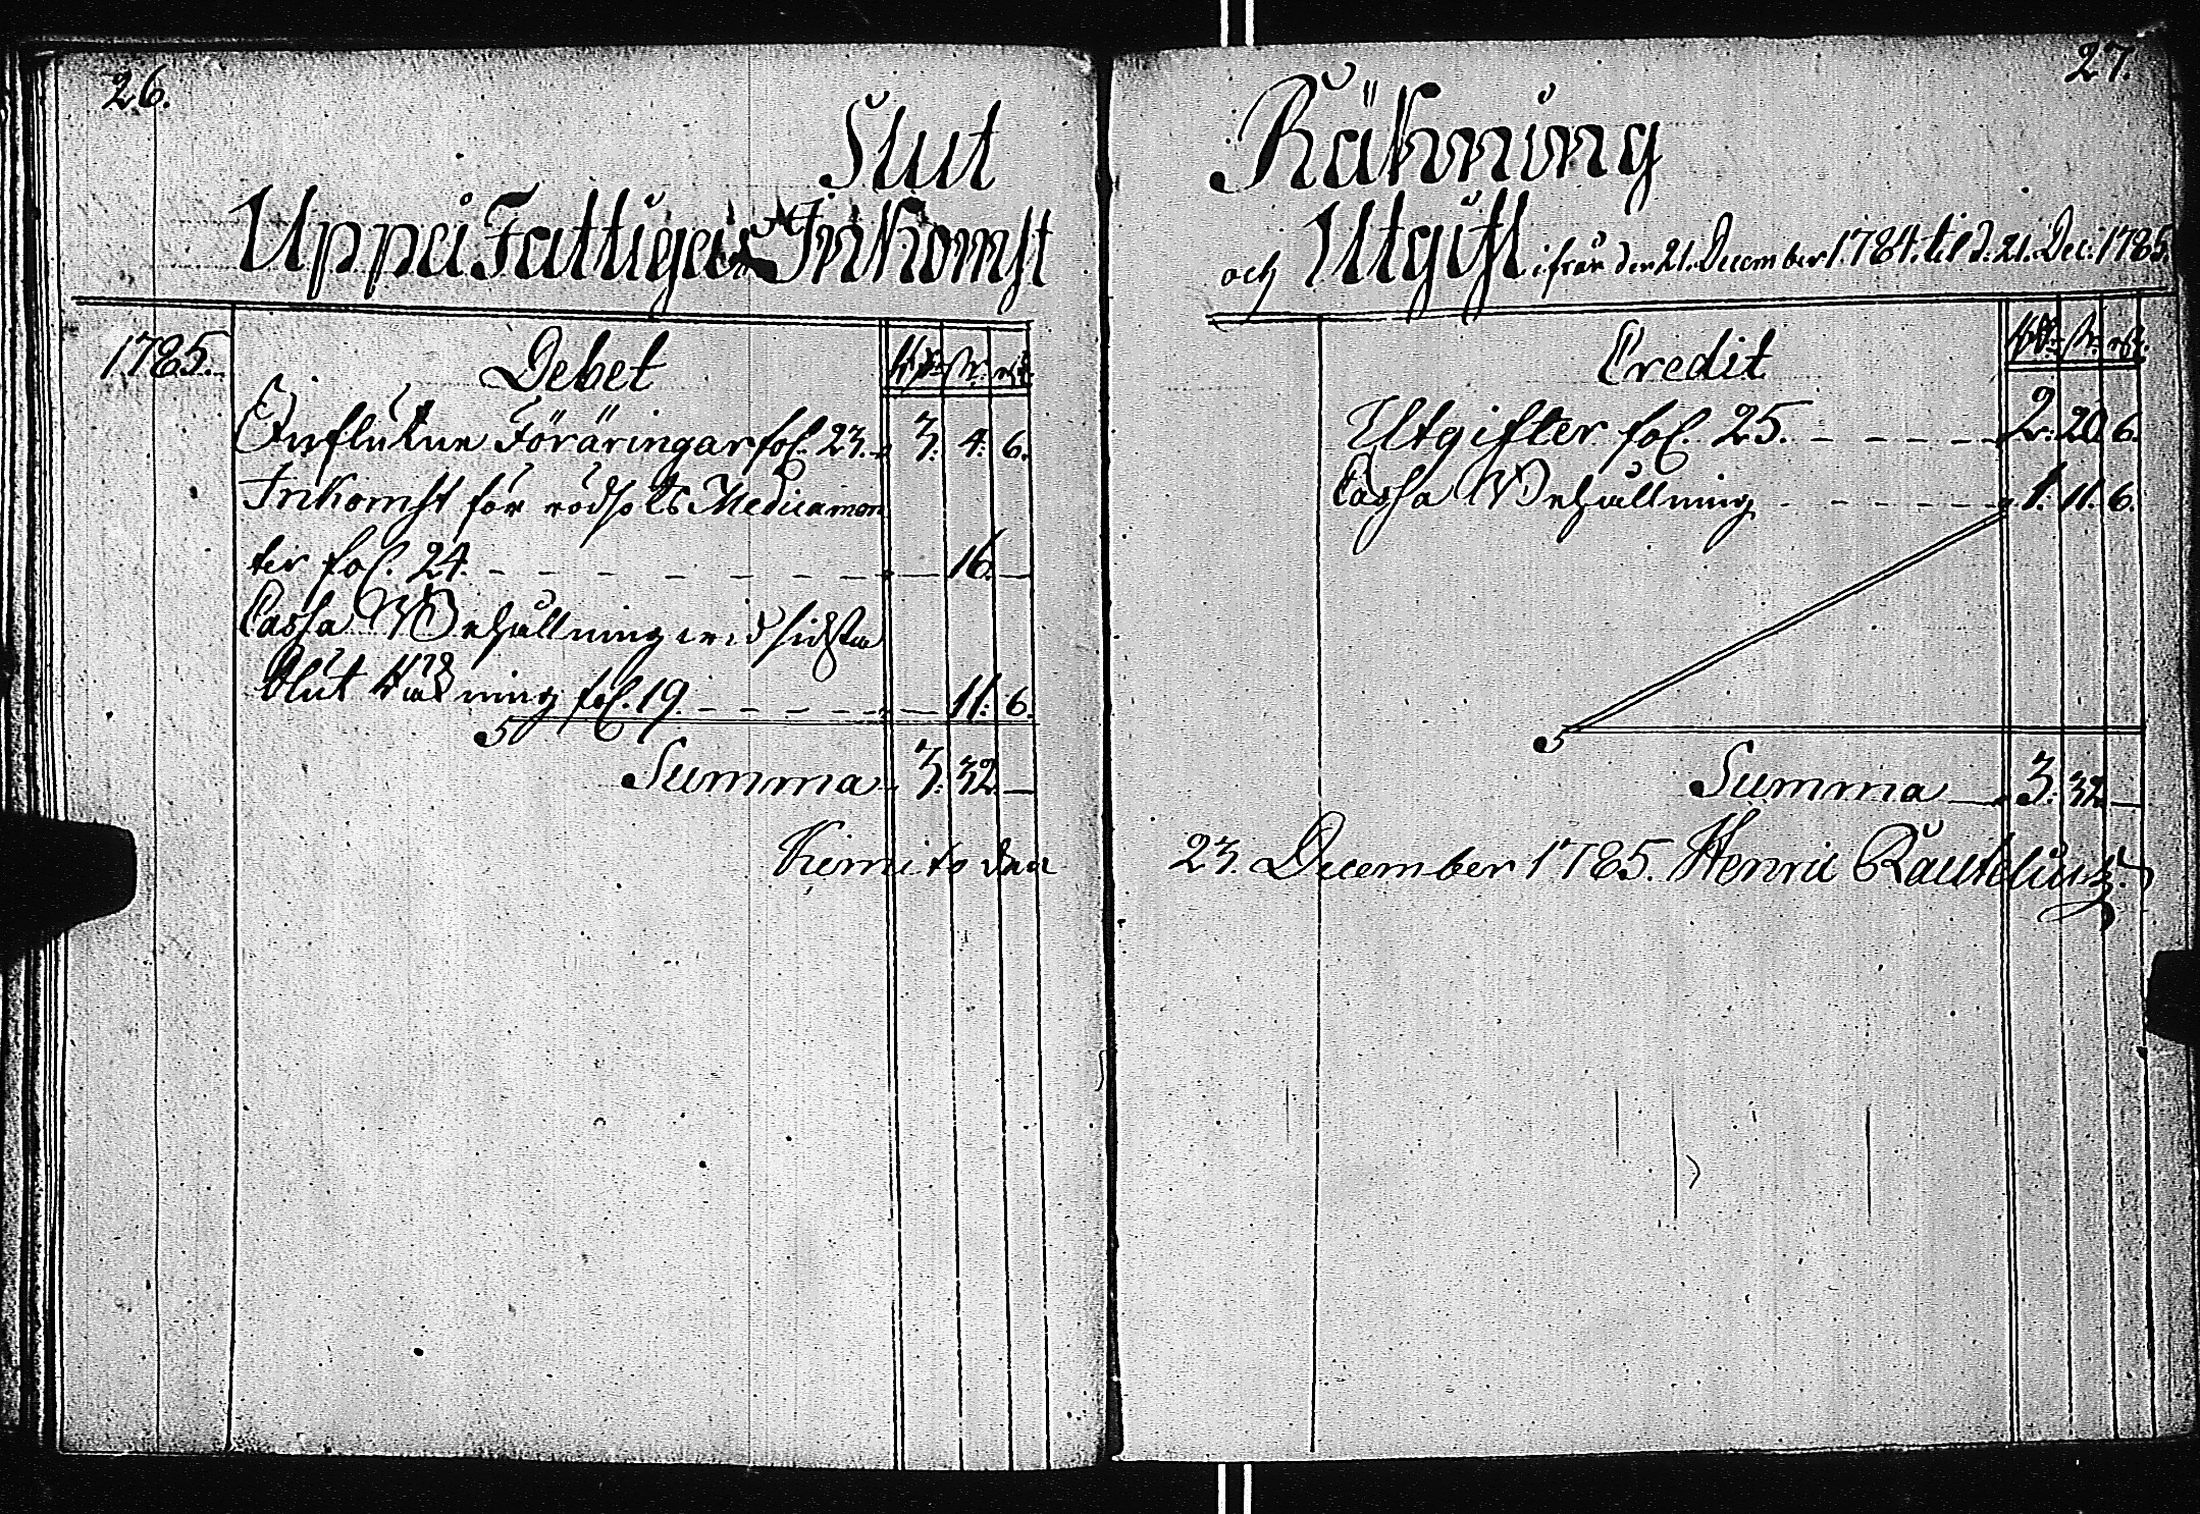 26.
Slut
Uppå Fattigas Inkomst
1785.
Debet
Influtne Föräringar fol. 23. 3: 4: 6.
Inkomst för Medicamen
ter fol. 24. — 16. —
Cassa Behållning vid sidsta
Slut Räkning fol. 19. — 11: 6.
Summa 3: 32. —
Kimito den
27.
Räkning
och Utgift ifrån den 21. December 1784. til d: 21. Dec: 1785.
Credit
Utgifter fol. 25. 2: 20. 6.
Cassa Behållning 1: 11. 6.
Summa 3: 32 —
23. December 1785. Henric Rautelius.